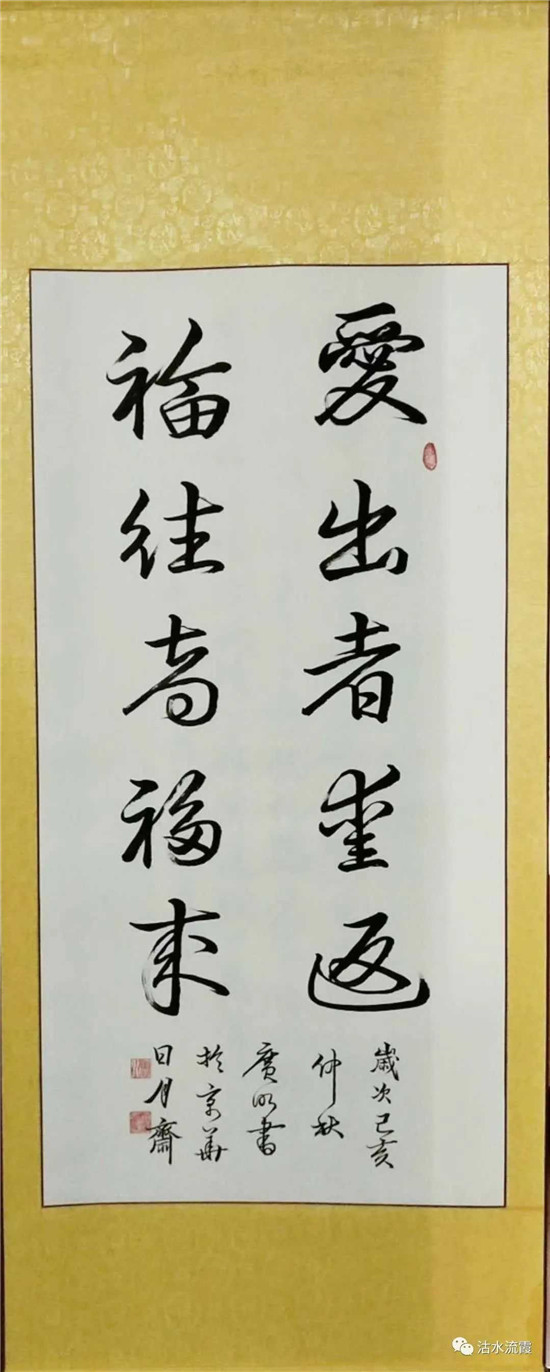 愛出者愛返
福往者福來
歲次己亥
仲秋
廣明書
於京華
日月齋
沽水流霞